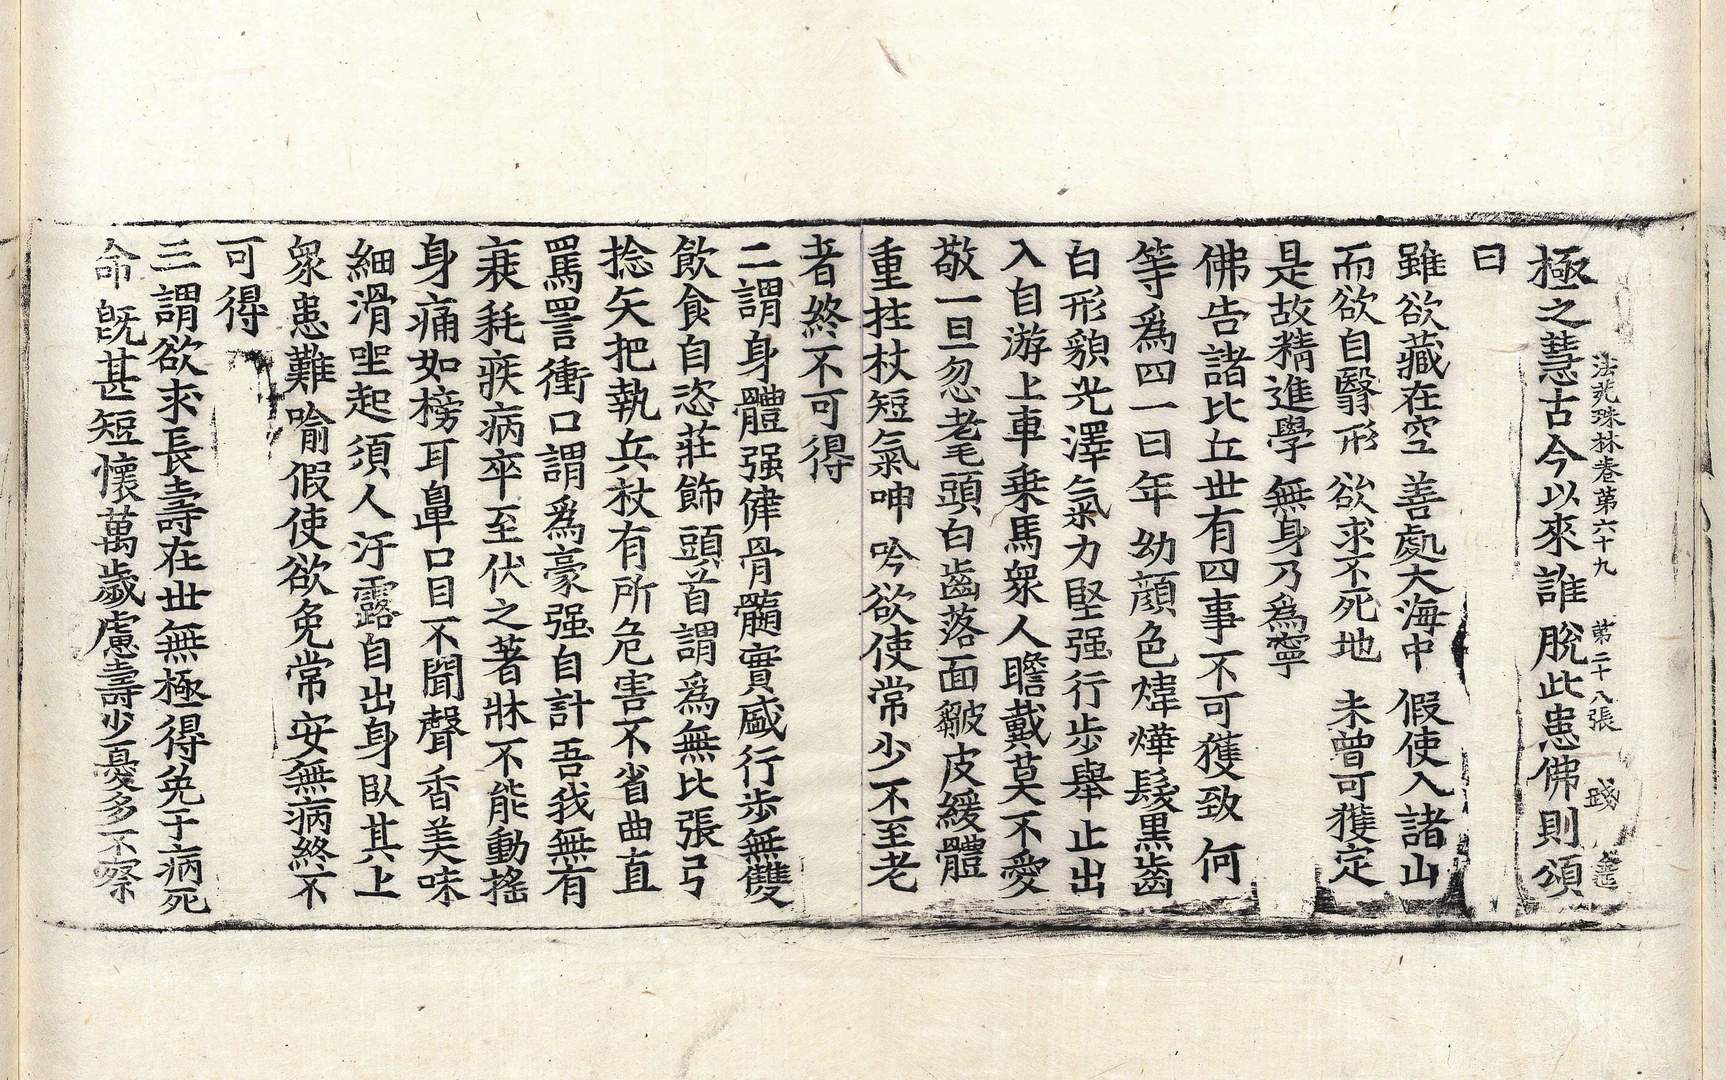 法苑珠林卷第六十九 第二十八張 踐
極之慧古今以來誰脫此患佛則頌
曰
雖欲藏在空 善處大海中 假使入諸山
而欲自翳形 欲求不死地 未曾可獲定
是故精進學 無身乃爲寧
佛告諸比丘世有四事不可獲致何
等爲四一曰年幼顏色煒燁髮黒齒
白形貌光澤氣力堅强行步舉止出
入自游上車乗馬衆人瞻戴莫不愛
敬一旦忽老毛頭白齒落面皺皮緩體
重拄杖短氣呻吟欲使常少不至老
者終不可得
二謂身體强健骨髓實盛行步無雙
飲食自恣莊飾頭首謂爲無比張弓
捻矢把執兵杖有所危害不省曲直
罵詈衝口謂爲豪强自計吾我無有
衰耗疾病卒至伏之著牀不能動搖
身痛如榜耳鼻口目不聞聲香美味
細滑坐起須人汙露自出身臥其上
衆患難喻假使欲免常安無病終不
可得
三謂欲求長壽在世無極得免于病死
命旣甚短懷萬歲慮壽少憂多不察